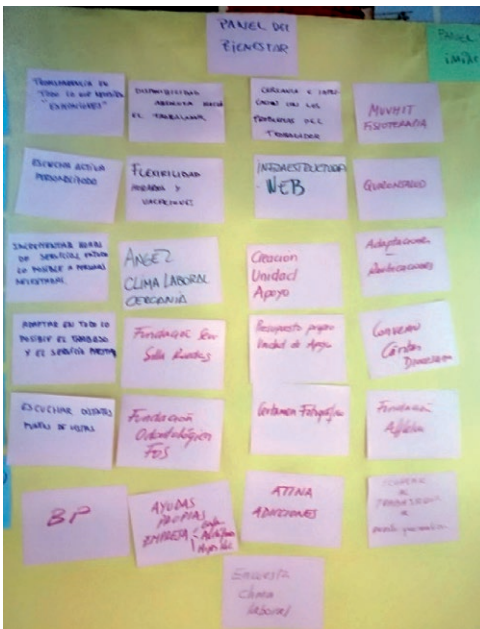 PANEL DEL
BIENESTAR
PANEL
TRANSPARENCIA EN
TODO LO QUE
DISPONIBILIDAD
ABSOLUTA HACIA
EL TRABAJADOR
CERCANIA E
CON LOS
PROBLEMAS DEL
TRABAJADOR
MUVHIT
FISIOTERAPIA
ESCUCHA ACTIVA
PERSONALIZADO
FLEXIBILIDAD
HORARIA Y
VACACIONES
INFRAESTRUCTURA
WEB
QUIRONSALUD
INCREMENTAR HORAS
DE SERVICIO
LO POSIBLE A PERSONAS
ANGEZ
CLIMA LABORAL
CERCANÍA
Creacion
Unidad
Apoyo
Adaptaciones
ADAPTAR EN TODO LO
POSIBLE EL TRABAJO
Y EL SERVICIO
Fundacion
Silla Ruedas
Presupuesto propio
Unidad de Apoyo
Convenio
ESCUCHAR DISTINTOS
PUNTOS DE VISTAS
Fundación
Odontológica
FDS
Certamen Fotográfico
Fundación
BP
AYUDAS
PROPIAS
EMPRESA
ATINA
ADICCIONES
Encuesta
Clima
laboral